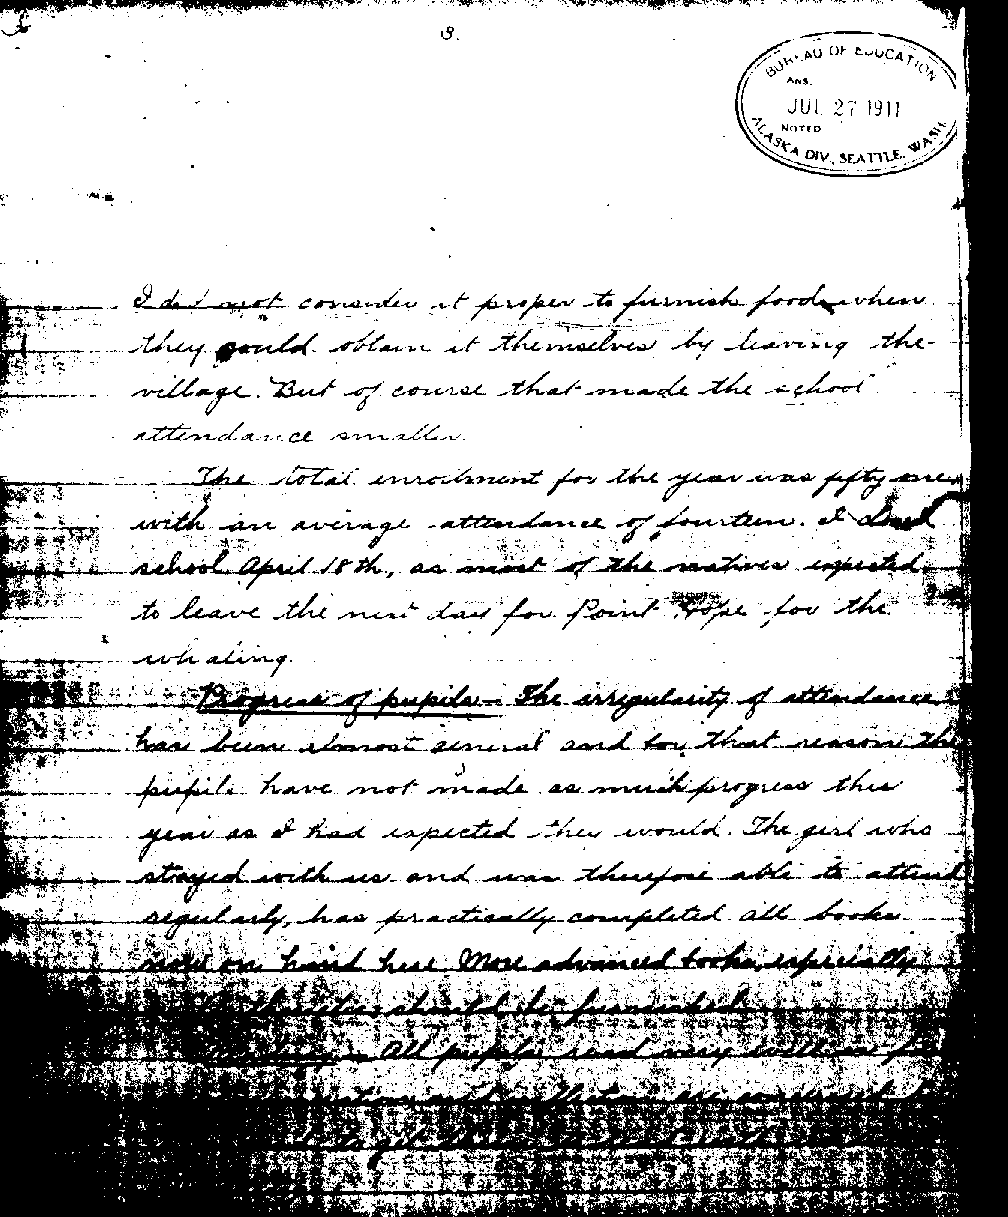 3.
BUREAU OF EDUCATION
ANS.
JUL 27 1911
NOTED
ALASKA DIV., SEATTLE, WASH.
I did not consider it proper to furnish food when
they could obtain it themselves by leaving the
village. But of course that made the school
attendance smaller.
The total enrollment for the year was fifty one,
with an average attendance of fourteen. I closed
school April 18th, as most of the natives expected
to leave the next day for Point Hope for the
whaling.
Progress of pupils - The irregularity of attendance
has been almost general and for that reason the
pupils have not made as much progress this
year as I had expected they would. The girl who
stayed with us and was therefore able to attend
regularly, has practically completed all books
now on hand here. More advanced books, especially
should be furnished.
Reading - All pupils read very well as far